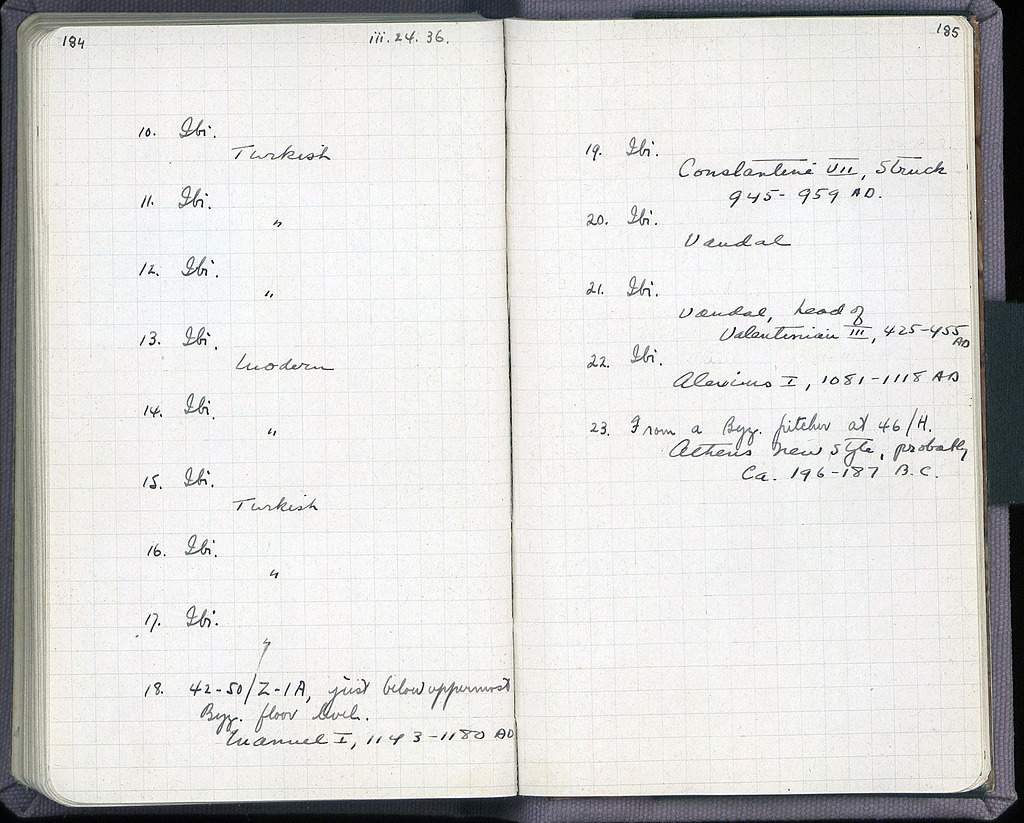 184
iii. 24. 36.
10. Ibi.
Turkish
11. Ibi.
"
12. Ibi.
"
13. Ibi.
Modern
14. Ibi.
"
15. Ibi.
Turkish
16. Ibi.
"
17. Ibi.
"
18. 42-50/Z-1A, just below uppermost
Byz. floor level.
Manuel I, 1143-1180 AD
185
19. Ibi.
Constantine VII, Struck
945-959 AD.
20. Ibi.
Vandal
21. Ibi.
Vandal, head of
Valentinian III, 425-455 AD
22. Ibi.
Alexius I, 1081-1118 AD
23. From a Byz. pitcher at 46/H.
Athens new style, probably
Ca. 196-187 B.C.